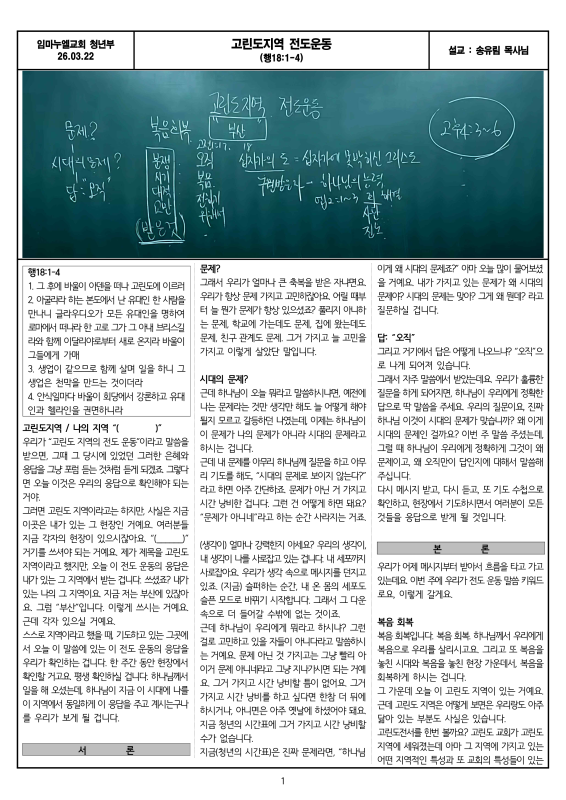 임마누엘교회 청년부
26.03.22
고린도지역 전도운동
(행18:1-4)
설교 : 송유림 목사님
고린도지역 전도운동
"부산"
문제?
시대의 문제?
답: "오직"
복음회복
오직
복음
십자가의 도 = 십자가에 못박히신 그리스도
구원받는자 - 하나님의 능력
행18:1-4
1. 그 후에 바울이 아덴을 떠나 고린도에 이르러
2. 아굴라라 하는 본도에서 난 유대인 한 사람을
만나니 글라우디오가 모든 유대인을 명하여
로마에서 떠나라 한 고로 그가 그 아내 브리스길
라와 함께 이달리야로부터 새로 온지라 바울이
그들에게 가매
3. 생업이 같으므로 함께 살며 일을 하니 그
생업은 천막을 만드는 것이더라
4. 안식일마다 바울이 회당에서 강론하고 유대
인과 헬라인을 권면하니라
고린도지역 / 나의 지역 "( )"
우리가 "고린도 지역의 전도 운동"이라고 말씀을
받으면, 그때 그 당시에 있었던 그러한 은혜와
응답을 그냥 포럼 듣는 것처럼 듣게 되겠죠. 그렇다
면 오늘 이것은 우리의 응답으로 확인해야 되는
거야.
그러면 고린도 지역이라고는 하지만, 사실은 지금
이곳은 내가 있는 그 현장인 거예요. 여러분들
지금 각자의 현장이 있으시잖아요. "(______)"
거기를 쓰셔야 되는 거예요. 제가 제목을 고린도
지역이라고 했지만, 오늘 이 전도 운동의 응답은
내가 있는 그 지역에서 받는 겁니다. 쓰셨죠? 내가
있는 나의 그 지역이요. 지금 저는 부산에 있잖아
요. 그럼 "부산"입니다. 이렇게 쓰시는 거예요.
근데 각자 있으실 거예요.
스스로 지역이라고 했을 때, 기도하고 있는 그곳에
서 오늘 이 말씀에 있는 이 전도 운동의 응답을
우리가 확인하는 겁니다. 한 주간 동안 현장에서
확인할 거고요. 평생 확인하실 겁니다. 하나님께서
일을 해 오셨는데, 하나님이 지금 이 시대에 나를
이 지역에서 동일하게 이 응답을 주고 계시는구나
를 우리가 보게 될 겁니다.
서 론
문제?
그래서 우리가 얼마나 큰 축복을 받은 자냐면요.
우리가 항상 문제 가지고 고민하잖아요. 어릴 때부
터 늘 뭔가 문제가 항상 있으셨죠? 풀리지 아니하
는 문제, 학교에 가는데도 문제, 집에 왔는데도
문제, 친구 관계도 문제. 그거 가지고 늘 고민을
가지고 이렇게 살았단 말입니다.
시대의 문제?
근데 하나님이 오늘 뭐라고 말씀하시냐면, 예전에
나는 문제라는 것만 생각만 해도 늘 어떻게 해야
될지 모르고 갈등하던 나였는데, 이제는 하나님이
이 문제가 나의 문제가 아니라 시대의 문제라고
하시는 겁니다.
근데 내 문제를 아무리 하나님께 질문을 하고 아무
리 기도를 해도, "시대의 문제로 보이지 않는다?"
라고 하면 아주 간단하죠. 문제가 아닌 거 가지고
시간 낭비한 겁니다. 그런 건 어떻게 하면 돼요?
"문제가 아니네"라고 하는 순간 사라지는 거죠.
(생각이) 얼마나 강력한지 아세요? 우리의 생각이,
내 생각이 나를 사로잡고 있는 겁니다. 내 세포까지
사로잡아요. 우리가 생각 속으로 메시지를 던지고
있죠. (지금) 슬퍼하는 순간, 내 온 몸의 세포도
슬픈 모드로 바뀌기 시작합니다. 그래서 그 다운
속으로 더 들어갈 수밖에 없는 것이죠.
근데 하나님이 우리에게 뭐라고 하시냐? 그런
걸로 고민하고 있을 자들이 아니다라고 말씀하시
는 거예요. 문제 아닌 것 가지고는 그냥 빨리 아
이거 문제 아니네라고 그냥 지나가시면 되는 거예
요. 그거 가지고 시간 낭비할 틈이 없어요. 그거
가지고 시간 낭비를 하고 싶다면 한참 더 뒤에
하시거나, 아니면은 아주 옛날에 하셨어야 돼요.
지금 청년의 시간표에 그거 가지고 시간 낭비할
수가 없습니다.
지금(청년의 시간표)은 진짜 문제라면, "하나님
이게 왜 시대의 문제죠?" 아마 오늘 많이 물어보셨
을 거예요. 내가 가지고 있는 문제가 왜 시대의
문제야? 시대의 문제는 맞아? 그게 왜 뭔데? 라고
질문하실 겁니다.
답: "오직"
그리고 거기에서 답은 어떻게 나오느냐? "오직"으
로 나게 되어져 있습니다.
그래서 자주 말씀에서 받았는데요. 우리가 훌륭한
질문을 하게 되어지면, 하나님이 우리에게 정확한
답으로 딱 말씀을 주세요. 우리의 질문이요. 진짜
하나님 이것이 시대의 문제가 맞습니까? 왜 이게
시대의 문제인 걸까요? 이번 주 말씀 주셨는데,
그럴 때 하나님이 우리에게 정확하게 그것이 왜
문제이고, 왜 오직만이 답인지에 대해서 말씀해
주십니다.
다시 메시지 받고, 다시 듣고, 또 기도 수첩으로
확인하고, 현장에서 기도하시면서 여러분이 모든
것들을 응답으로 받게 될 것입니다.
본 론
우리가 어제 메시지부터 받아서 흐름을 타고 가고
있는데요. 이번 주에 우리가 전도 운동 말씀 키워드
로요, 이렇게 갈게요.
복음 회복
복음 회복입니다. 복음 회복. 하나님께서 우리에게
복음으로 우리를 살리시고요. 그리고 또 복음을
놓친 시대와 복음을 놓친 현장 가운데서, 복음을
회복하게 하시는 겁니다.
그 가운데 오늘 이 고린도 지역이 있는 거예요.
근데 고린도 지역은 어떻게 보면은 우리랑도 아주
닮아 있는 부분도 사실은 있습니다.
고린도전서를 한번 볼까요? 고린도 교회가 고린도
지역에 세워졌는데 아마 그 지역에 가지고 있는
어떤 지역적인 특성과 또 교회의 특성들이 있는
1